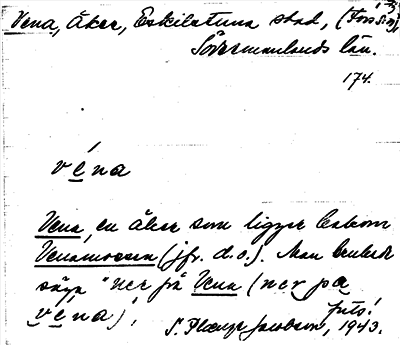 Vena, åker, Eskilstuna stad, (Fors sn),
Södermanlands län.
174.
véna
Vena, en åker som ligger bakom
Venamossen (jfr. d.o.). Man brukade
säga "ner på Vena (ner pa
véna)! Juts!
S. Placuz Jacobson, 1943.